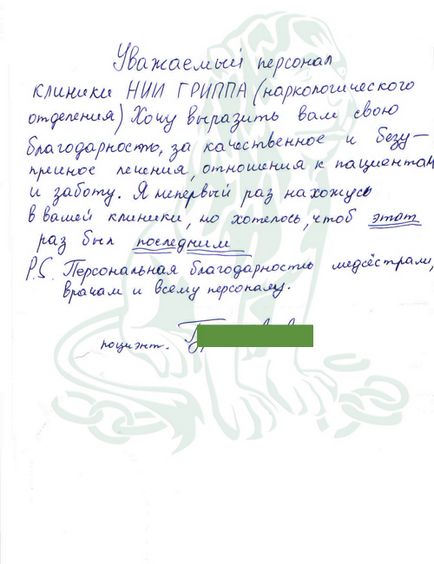 Уважаемый персонал
клиники НИИ ГРИППА (наркологического
отделения) Хочу выразить вам свою
благодарность, за качественное и безу-
пречное лечения, отношения к пациентам
и заботу. Я непервый раз нахожусь
в вашей клиники, но хотелось, чтоб этат
раз был последним
P.S. Персональная благодарность медсёстрам,
врачам и всему персоналу.
поциэнт.